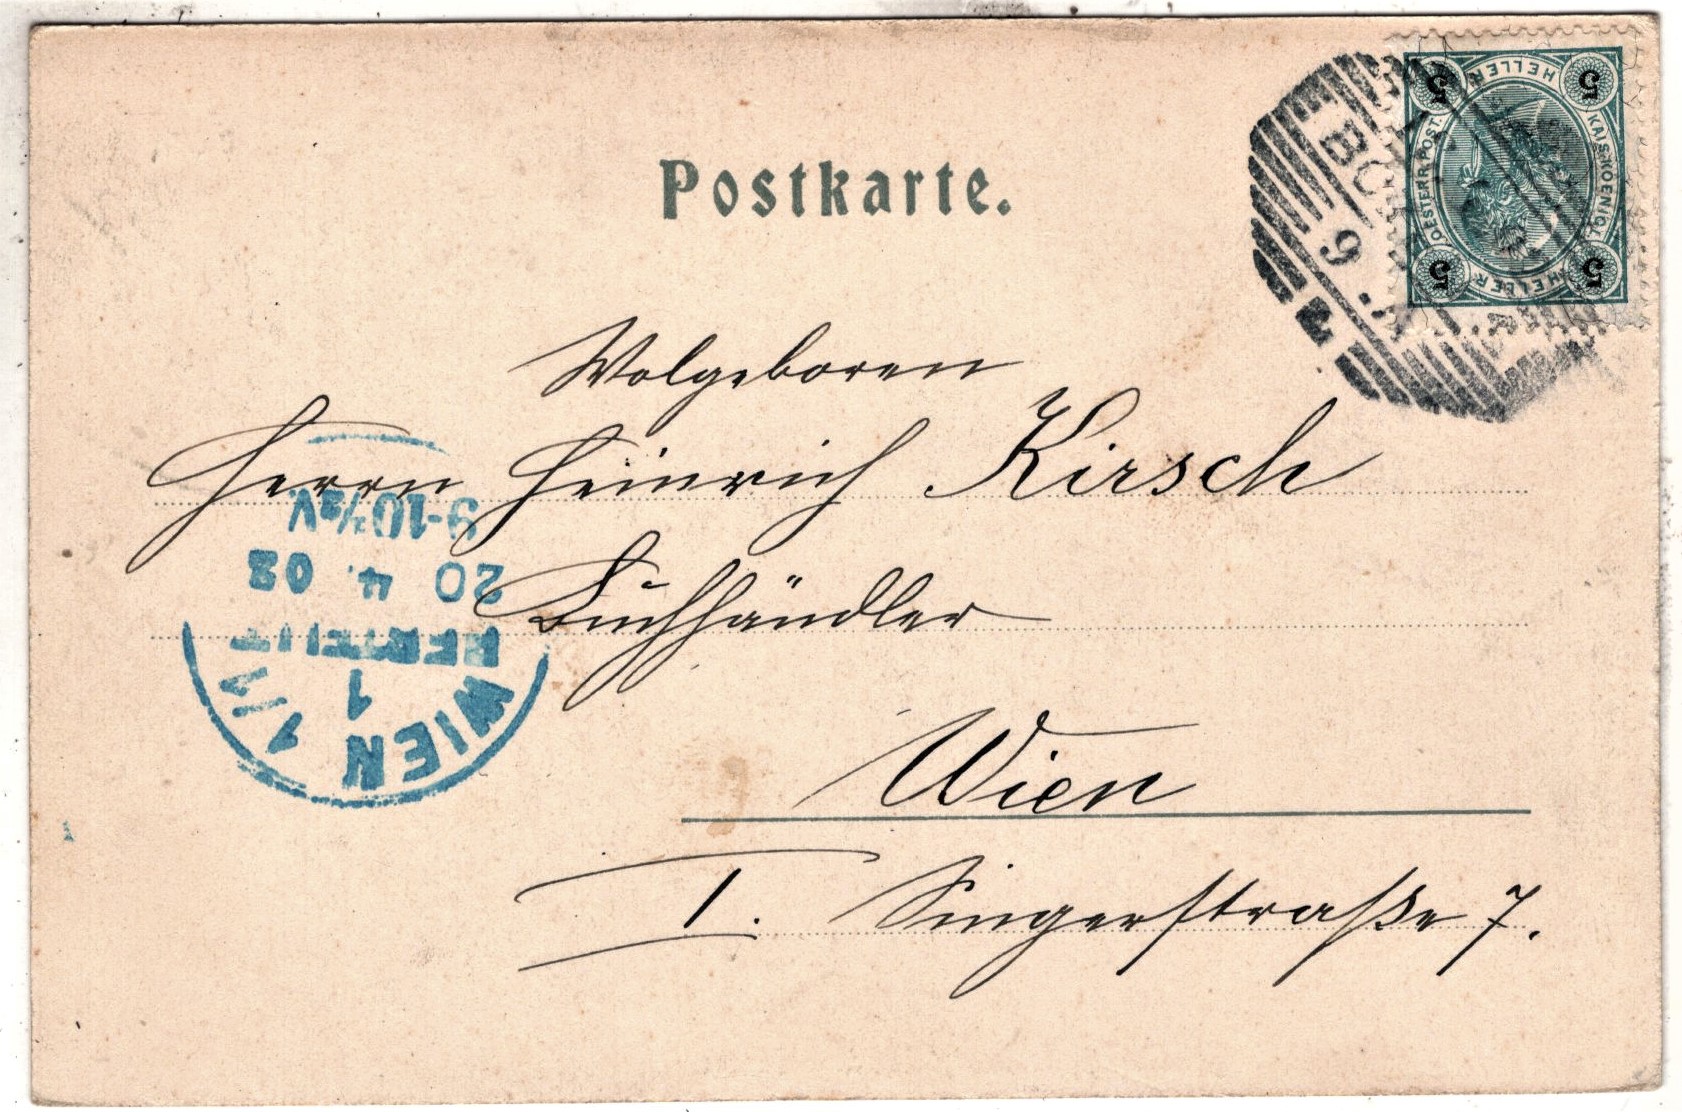 Postkarte.
5 HELLER 5
OESTERR. POST.
KAIS. KOENIGL.
5 HELLER 5
9
Wolgeboren
Herrn Heinrich Kirsch
Buchhändler
Wien
I. Singerstraße 7.
WIEN 1/1
1
BESTELLT
20 4. 03
9-10½V.